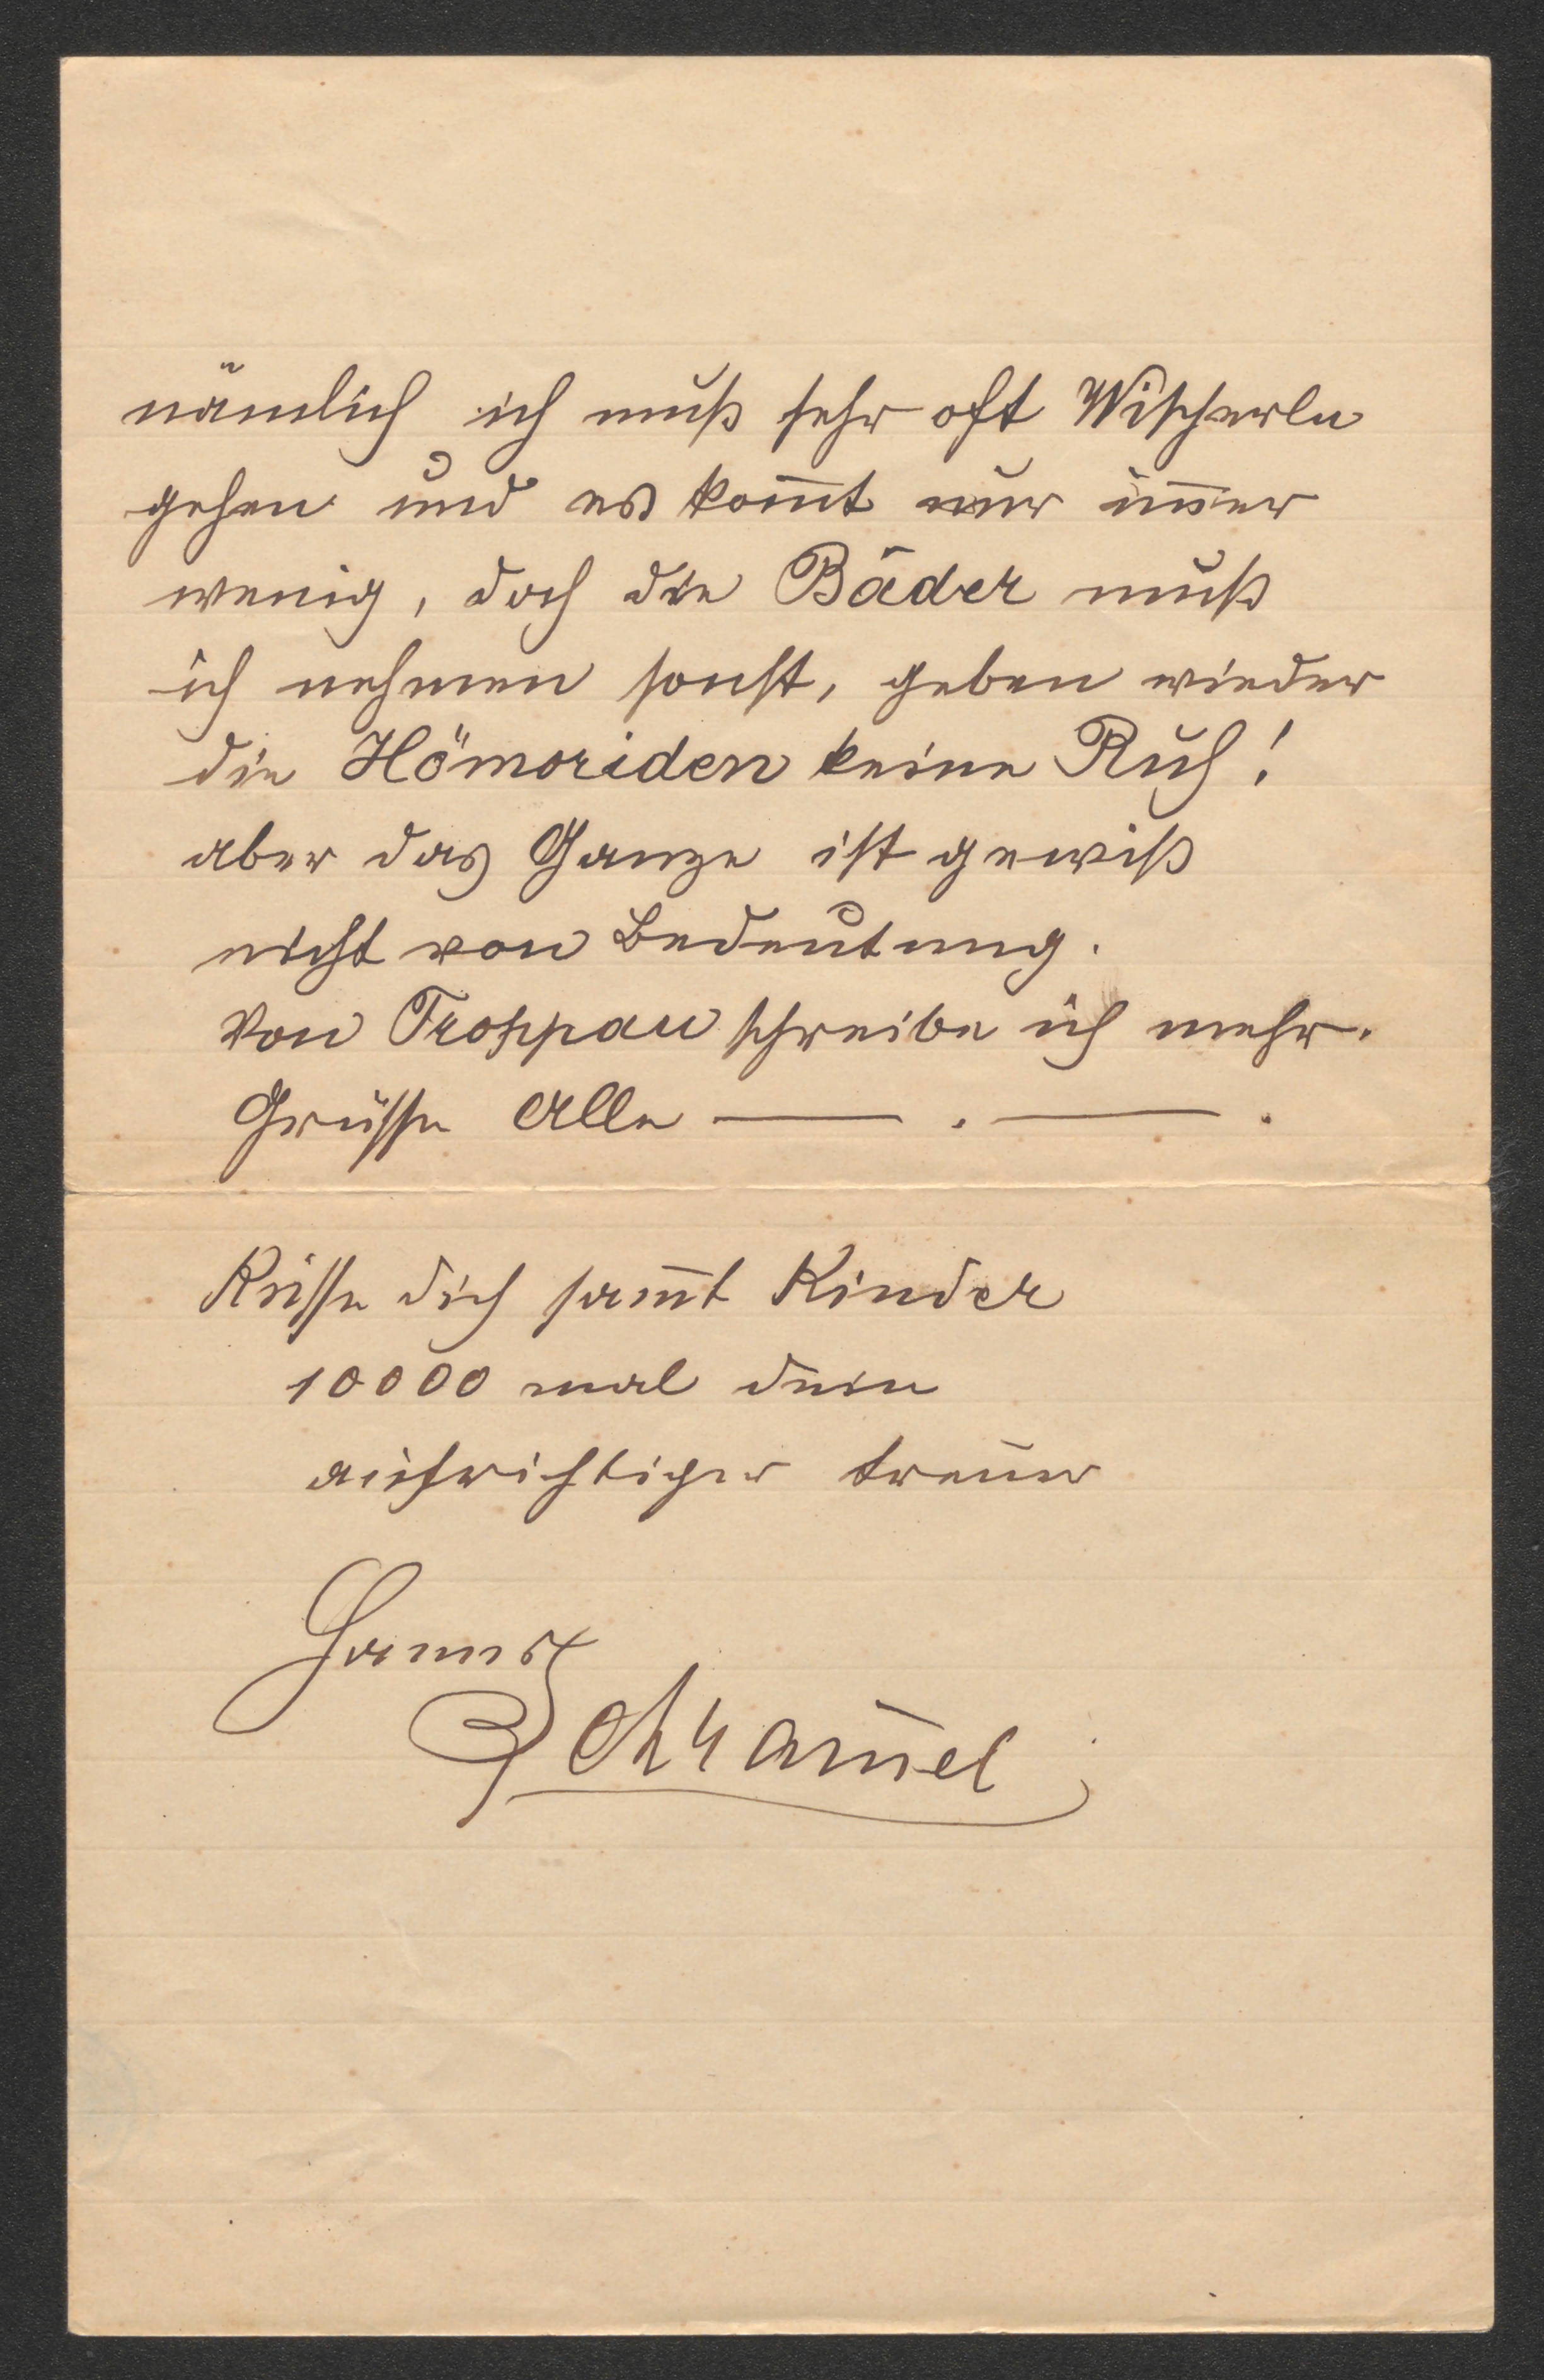 nämlich ich muß sehr oft Wischerln
gehen und es kom̅t nur im̅er
wenig, doch die Bäder muß
ich nehmen sonst, geben wieder
die Hömoriden keine Ruh!
aber das Ganze ist gewiß
nicht von Bedeutung.
Von Troppau schreibe ich mehr.
Grüsse Alle — . — .
Küsse dich sam̅t Kinder
10000 mal dein
aufrichtiger treuer
Hanns
Schram̅el